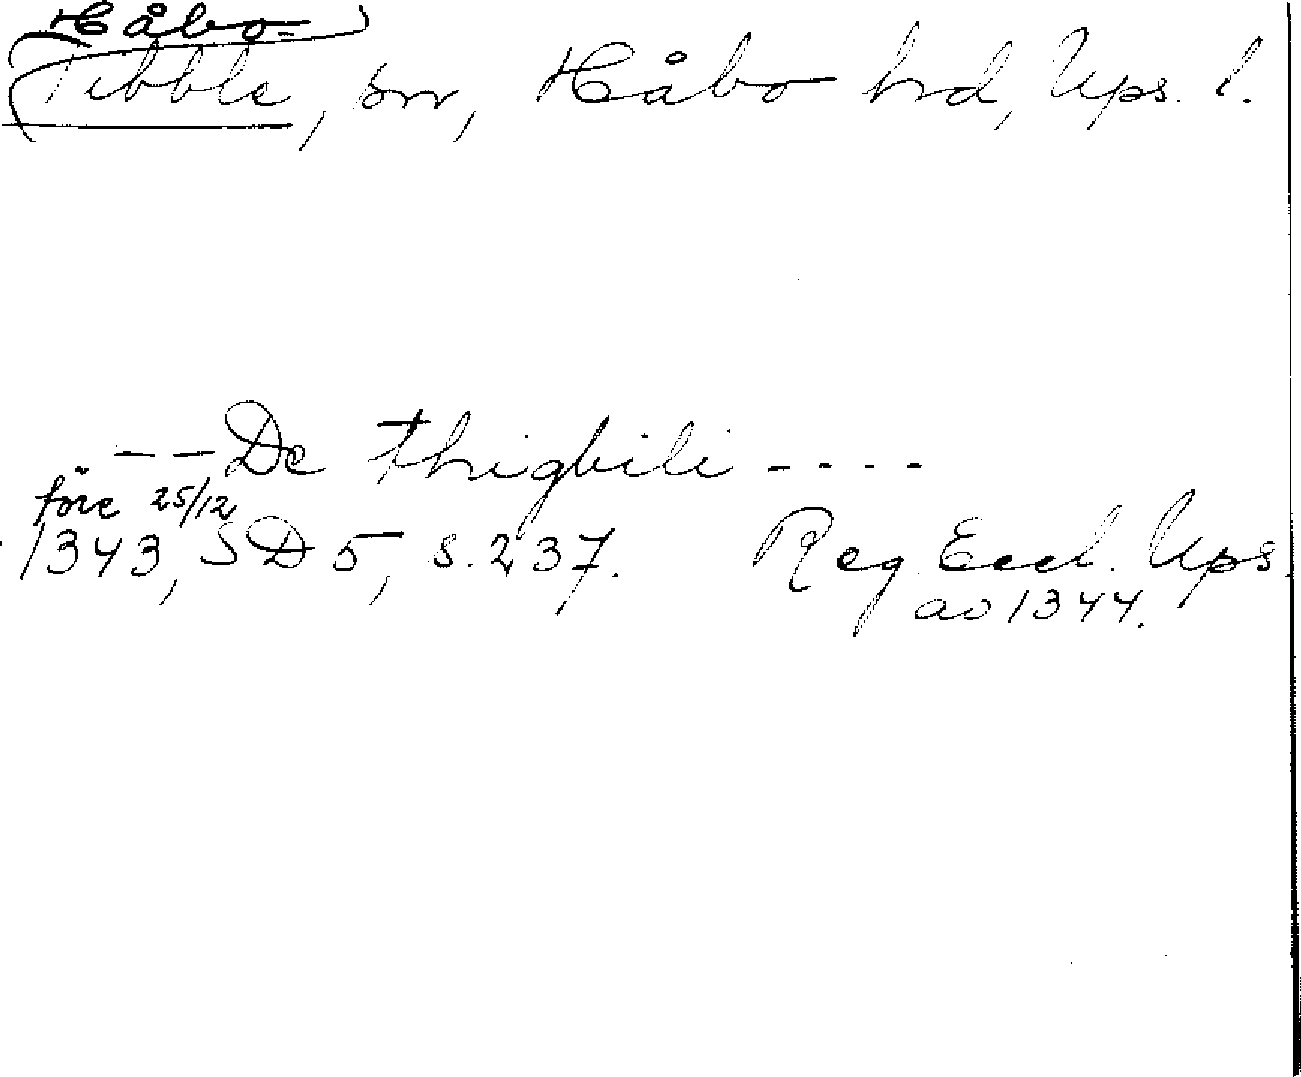 Håbo-
Tibble, sn, Håbo hd, Ups. l.
-- De thigbili ----
före 25/12
1343, SD 5, s. 237. Reg. Eccl. Ups
av 1344.